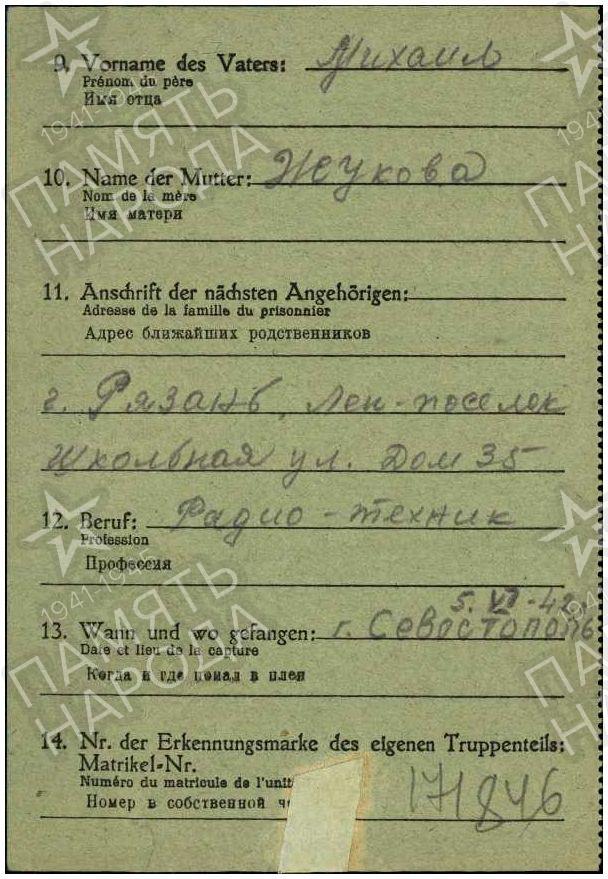 9. Vorname des Vaters: Михаил
Prénom du père
Имя отца
10. Name der Mutter: Жукова
Nom de la mère
Имя матери
11. Anschrift der nächsten Angehörigen:
Adresse de la famille du prisonnier
Адрес ближайших родственников
г. Рязань, Лен-поселек
Школьная ул. Дом 35
12. Beruf: Радио-техник
Profession
Профессия
5. VI-42
13. Wann und wo gefangen: г. Севостополь
Date et lieu de la capture
Когда и где попал в плен
14. Nr. der Erkennungsmarke des eigenen Truppenteils:
Matrikel-Nr.
Numéro du matricule de l'unit
Номер в собственной ч 171846
ПАМЯТЬ НАРОДА
1941-1945